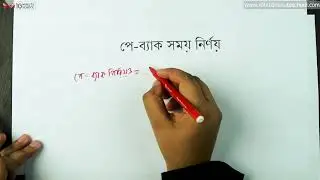 পে-ব্যাক সময় নির্ণয়
পে-ব্যাক পিরিয়ড =